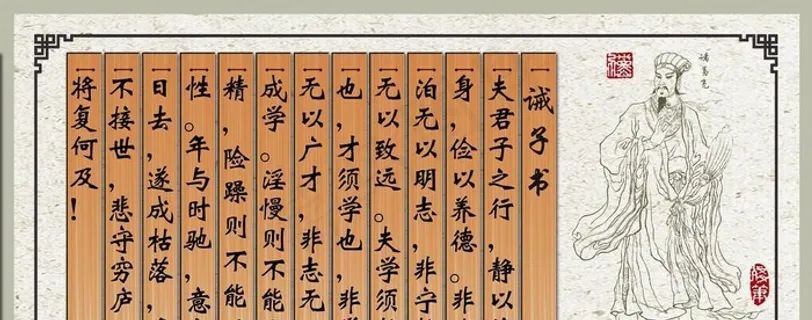 诫子书
夫君子之行，静以
身，俭以养德。非
泊无以明志，非宁
无以致远。夫学须
也，才须学也，非
无以广才，非志无
成学。淫慢则不能
精，险躁则不能
性。年与时驰，意
日去，遂成枯落，
不接世，悲守穷庐
将复何及！
诸葛亮